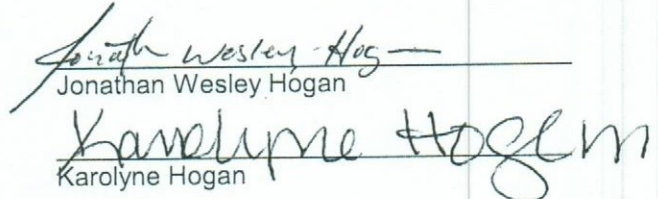 Jonath Wesley Hog
Jonathan Wesley Hogan
Karolyne Hogan
Karolyne Hogan